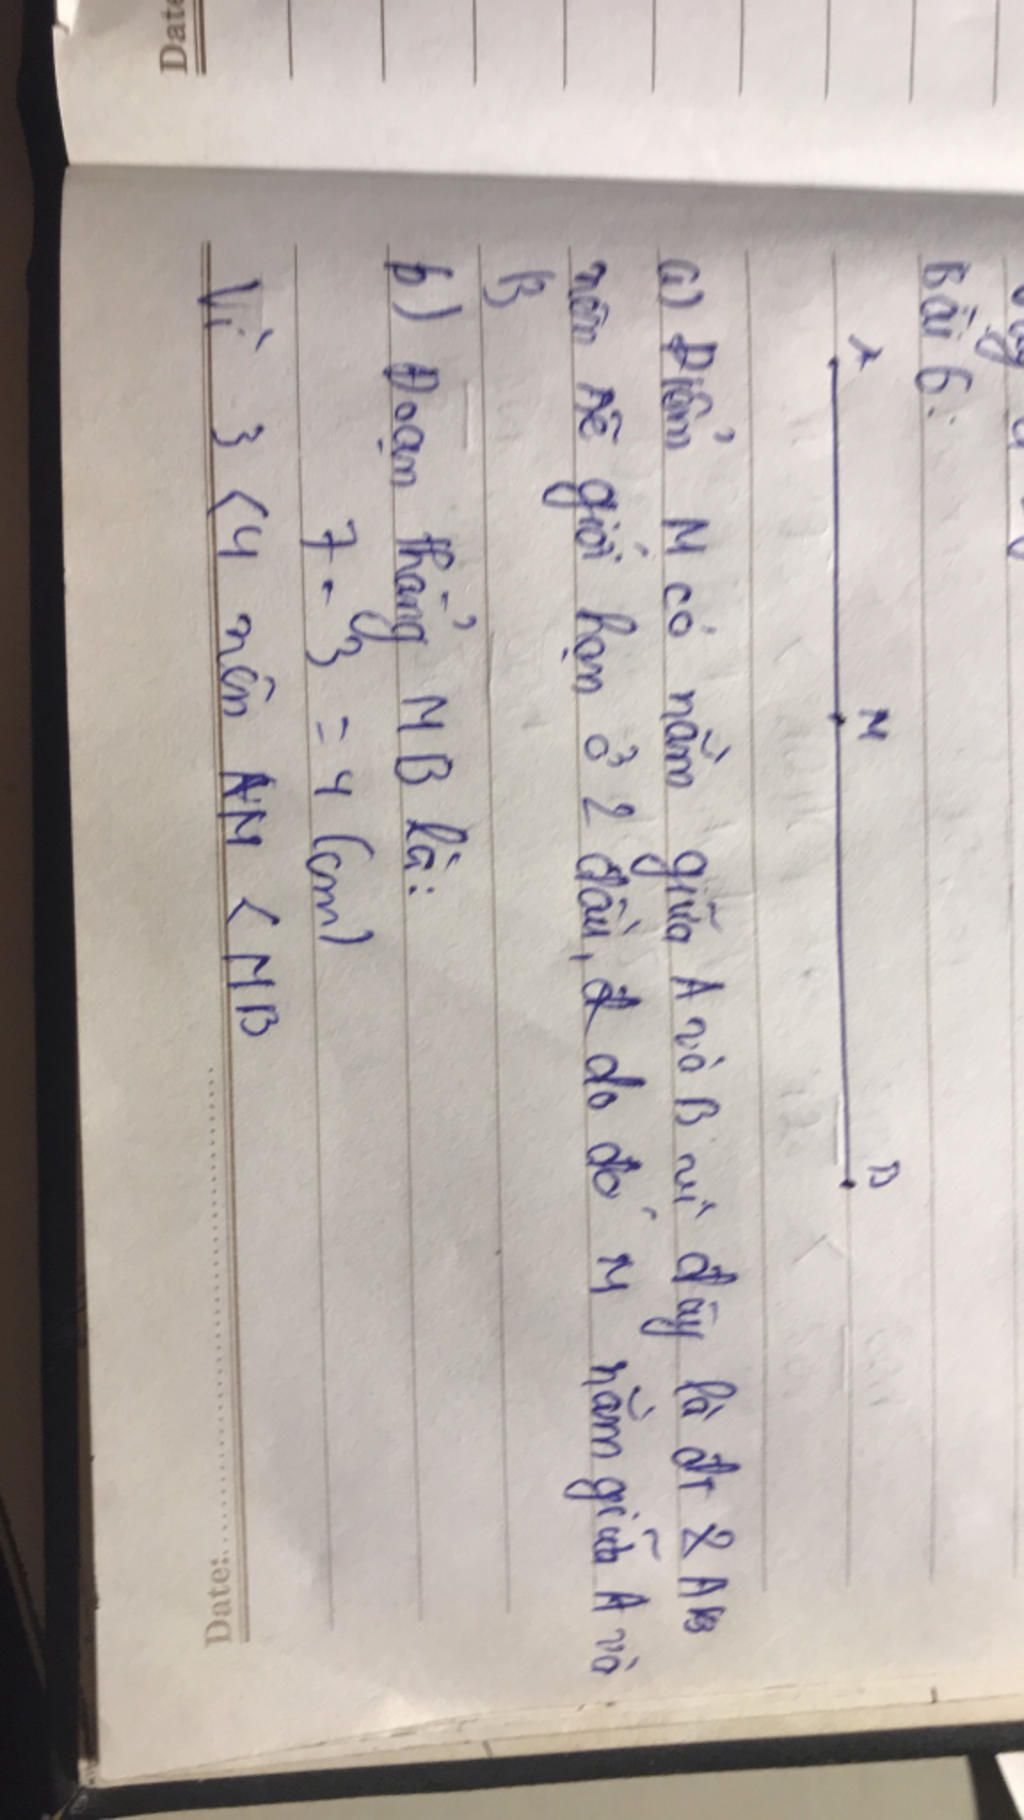 Date
Bài 6:
A M B
a) Điểm M có nằm giữa A và B vì đây là đt AB
nên sẽ giới hạn ở 2 đầu, do đó M nằm giữa A và
B
b) Đoạn thẳng MB là:
7 - 3 = 4 (cm)
Vì 3 < 4 nên AM < MB
Date: